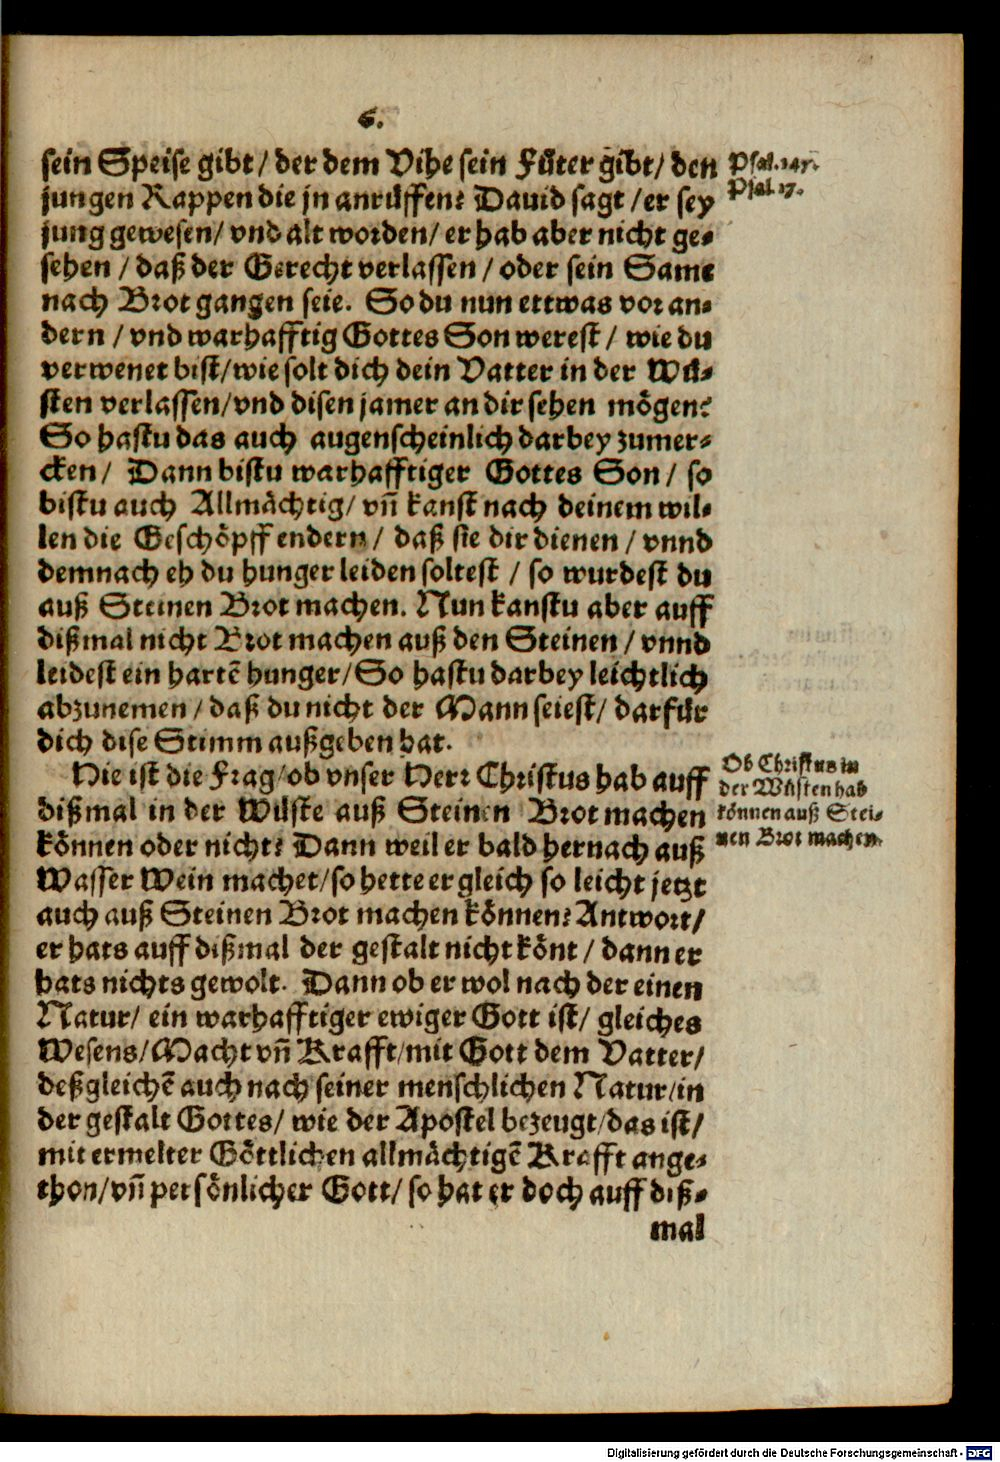 6.
sein Speise gibt / der dem Vihe sein Fůter gibt / den
jungen Rappen die jn anrůffen? Dauid sagt / er sey
jung gewesen / vnd alt worden / er hab aber nicht ge-
sehen / daß der Gerecht verlassen / oder sein Same
nach Brot gangen seie. So du nun ettwas vor an-
dern / vnd warhafftig Gottes Son werest / wie du
verwenet bist / wie solt dich dein Vatter in der Wů-
sten verlassen / vnd disen jamer an dir sehen mögen?
So hastu das auch augenscheinlich darbey zumer-
cken / Dann bistu warhafftiger Gottes Son / so
bistu auch Allmächtig / vñ kanst nach deinem wil-
len die Geschöpff endern / daß sie dir dienen / vnnd
demnach eh du hunger leiden soltest / so wurdest du
auß Steinen Brot machen. Nun kanstu aber auff
dißmal nicht Brot machen auß den Steinen / vnnd
leidest ein hartẽ hunger / So hastu darbey leichtlich
abzunemen / daß du nicht der Mann seiest / darfůr
dich dise Stimm außgeben hat.
Hie ist die Frag / ob vnser Herr Christus hab auff
dißmal in der Wůste auß Steinen Brot machen
können oder nicht? Dann weil er bald hernach auß
Wasser Wein machet / so hette er gleich so leicht jetzt
auch auß Steinen Brot machen können? Antwort /
er hats auff dißmal der gestalt nicht könt / dann er
hats nichts gewolt. Dann ob er wol nach der einen
Natur / ein warhafftiger ewiger Gott ist / gleiches
Wesens / Macht vñ Krafft / mit Gott dem Vatter /
deßgleichẽ auch nach seiner menschlichen Natur / in
der gestalt Gottes / wie der Apostel bezeugt / das ist /
mit ermelter Göttlichen allmächtigẽ Krafft ange-
thon / vñ persönlicher Gott / so hat er doch auff diß-
mal
Psal. 147.
Psal. 37.
Ob Christus in
der Wůsten hab
können auß Stei-
nen Brot machen.
Digitalisierung gefördert durch die Deutsche Forschungsgemeinschaft - DFG